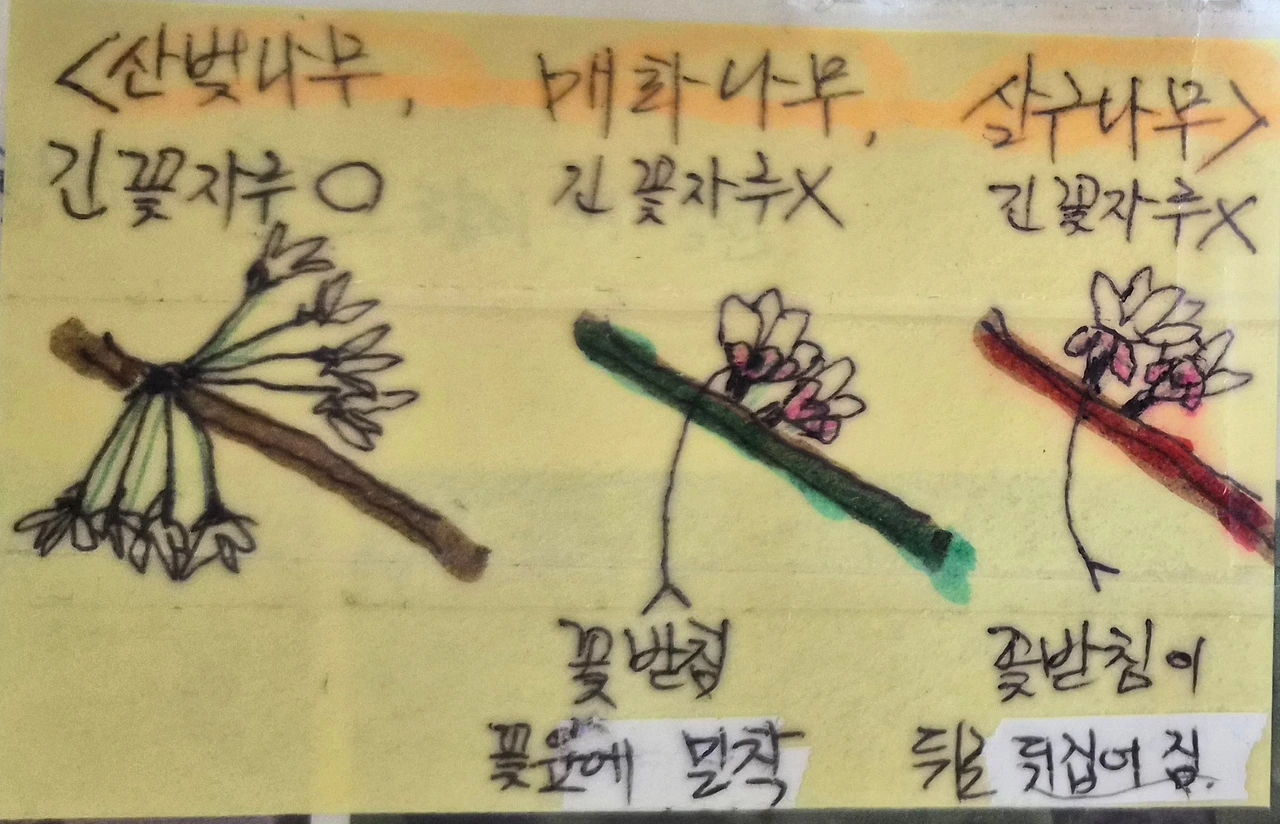 <산벚나무, 매화나무, 살구나무>
긴 꽃자루 O 긴 꽃자루 X 긴 꽃자루 X
꽃받침 꽃받침이
꽃잎에 밀착 뒤로 뒤집어 짐.